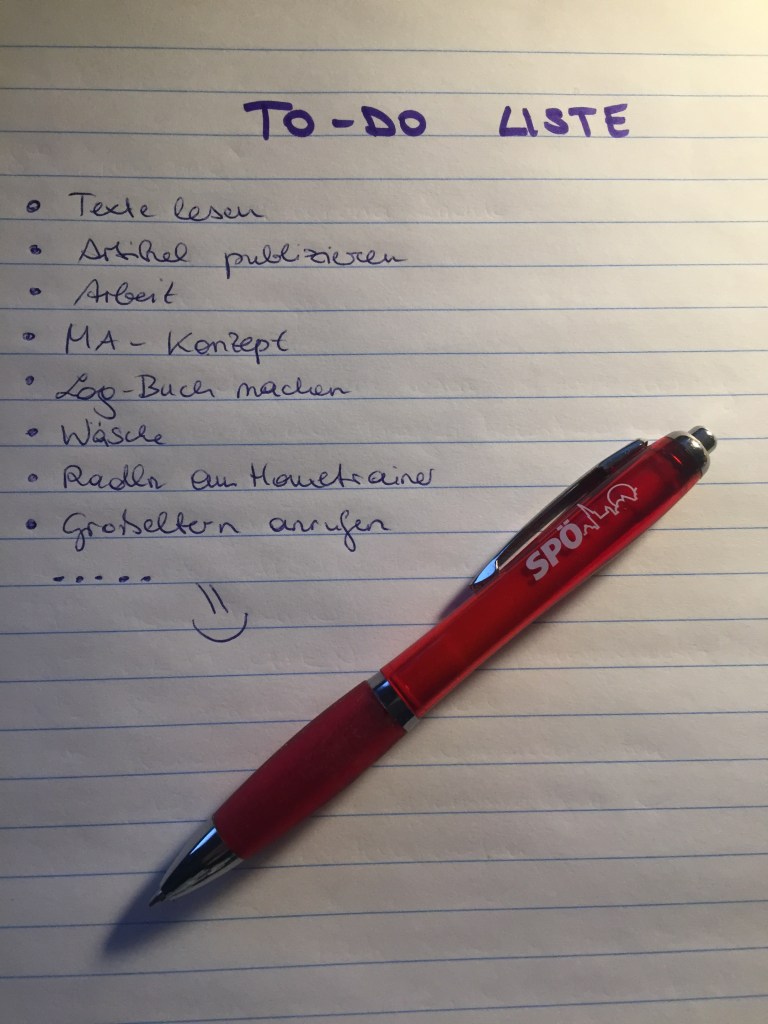 TO-DO LISTE
• Texte lesen
• Artikel publizieren
• Arbeit
• MA - Konzept
• Log-Buch machen
• Wäsche
• Radln am Hometrainer
• Großeltern anrufen
.....
=)
SPÖ